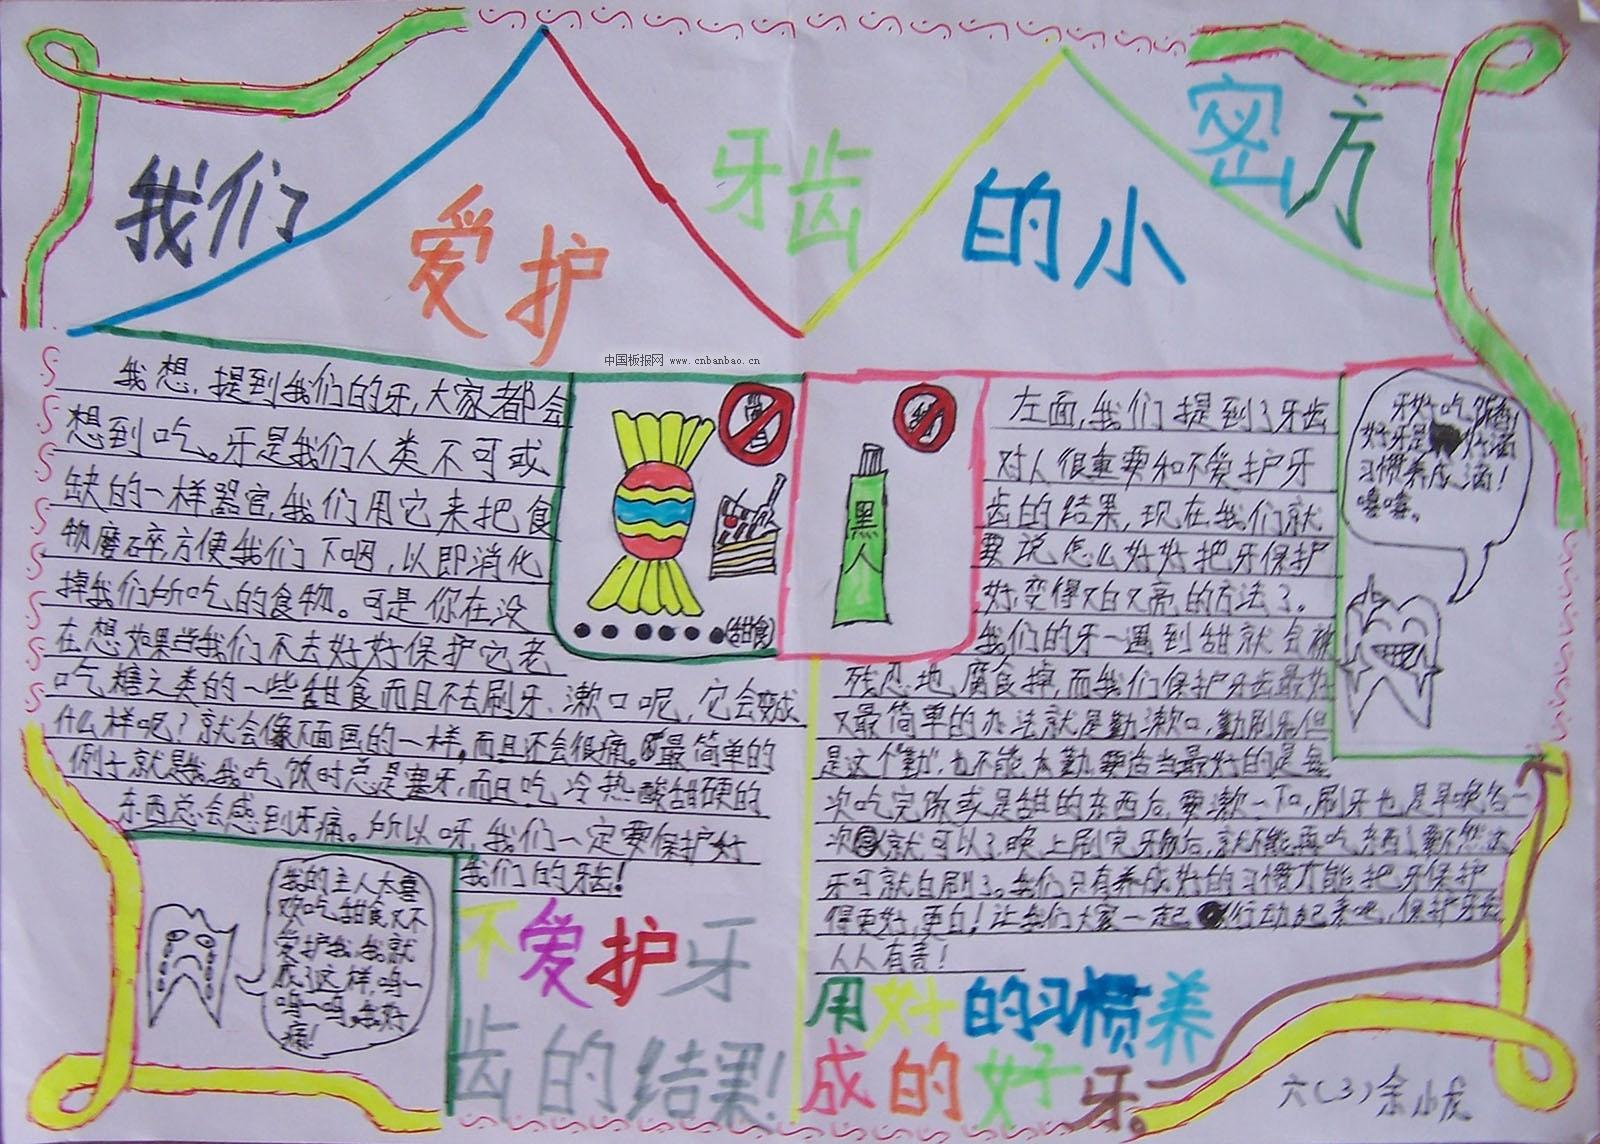 我们
爱护
牙齿
的小
密方
中国板报网 www.cnbanbao.cn
我想，提到我们的牙，大家都会
想到吃。牙是我们人类不可或
缺的一样器官，我们用它来把食
物磨碎，方便我们下咽，以即消化
掉我们所吃的食物。可是你在没
在想如果当我们不去好好保护它老
吃糖之类的一些甜食而且不去刷牙、漱口呢，它会变成
什么样呢？就会像下面画的一样，而且还会很痛。最简单的
例子就是我，我吃饭时总是塞牙，而且吃冷热酸甜硬的
东西总会感到牙痛。所以呀，我们一定要保护好
我们的牙齿！
(甜食)
黑人
左面，我们提到了牙齿
对人很重要和不爱护牙
齿的结果，现在，我们就
要说怎么好好把牙保护
好，变得又白又亮的方法了。
我们的牙一遇到甜就会被
残忍地腐食掉，而我们保护牙齿最好
又最简单的办法就是勤漱口，勤刷牙，但
是这个"勤"，也不能太勤，要适当最好的是每
次吃完饭或是甜的东西后，要漱一下口，刷牙也是早晚各一
次就可以了，晚上刷完牙后，就不能再吃东西了，要不然
牙可就白刷了。我们只有养成好的习惯才能把牙保护
得更好，更白！让我们大家一起行动起来吧，保护牙齿
人人有责！
牙好吃
好牙是好
习惯养成滴！
嘻嘻。
我的主人太喜
欢吃甜食又不
爱护我，我就
成了这样，呜—
呜—呜，我好
痛！
不爱护牙
齿的结果！
用好的习惯养
成的好牙。
六(3)余小龙